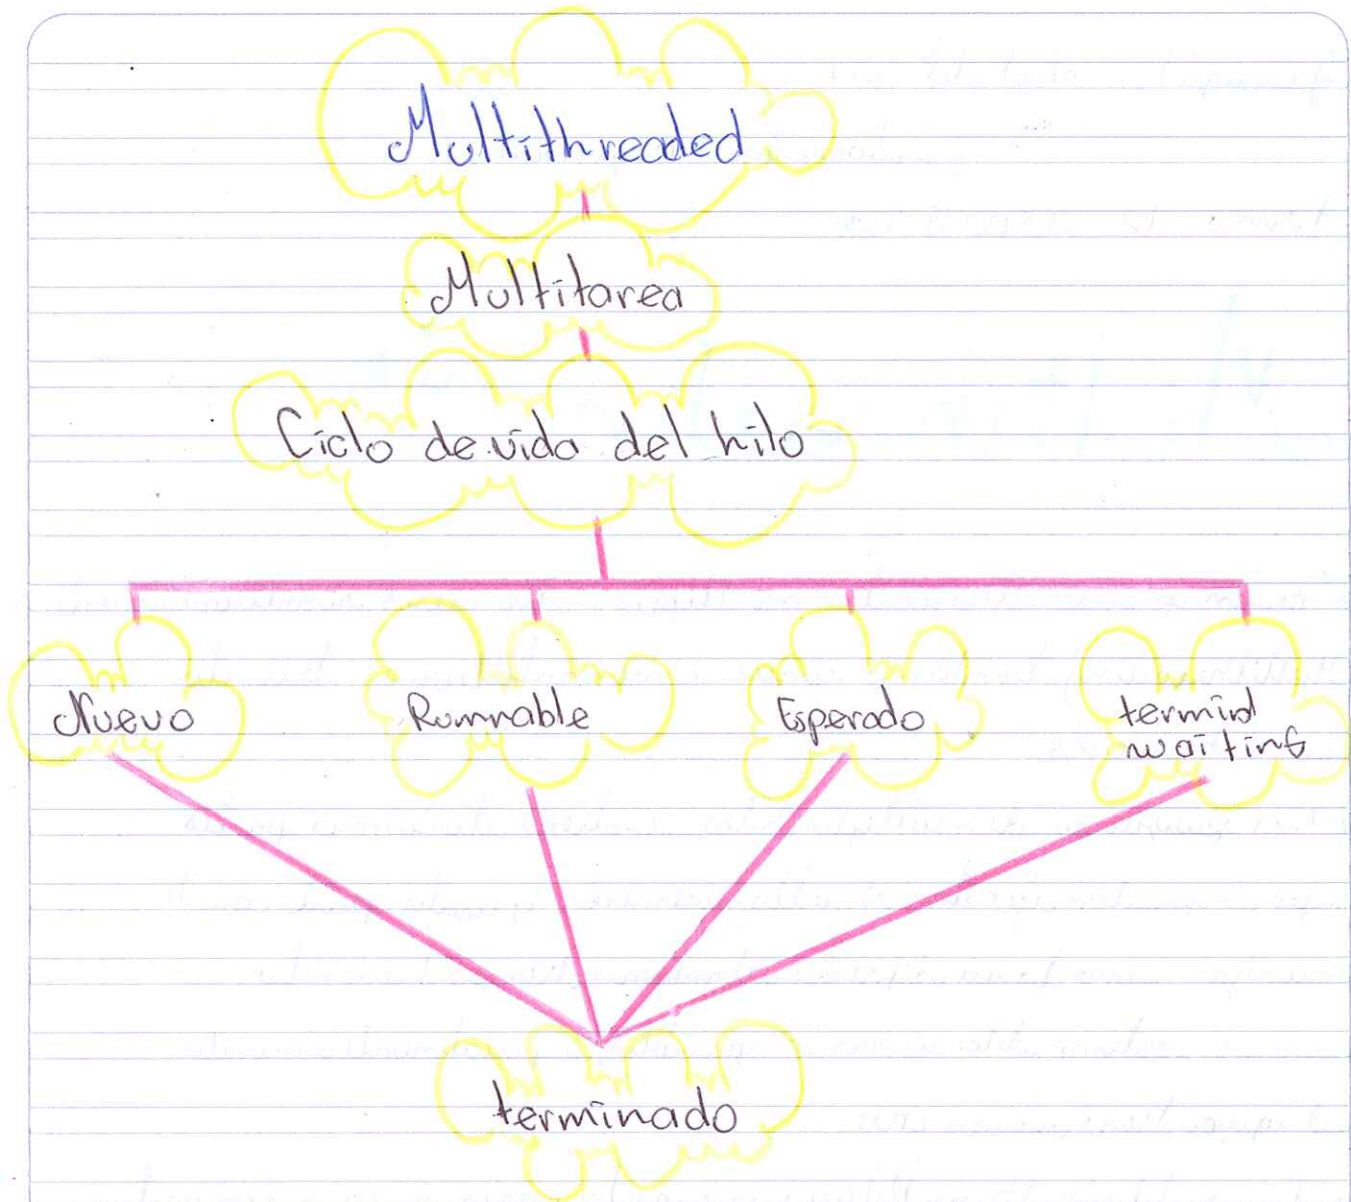 Multithreaded
Multitarea
Ciclo de vida del hilo
Nuevo
Rumnable
Esperado
termind
waiting
terminado